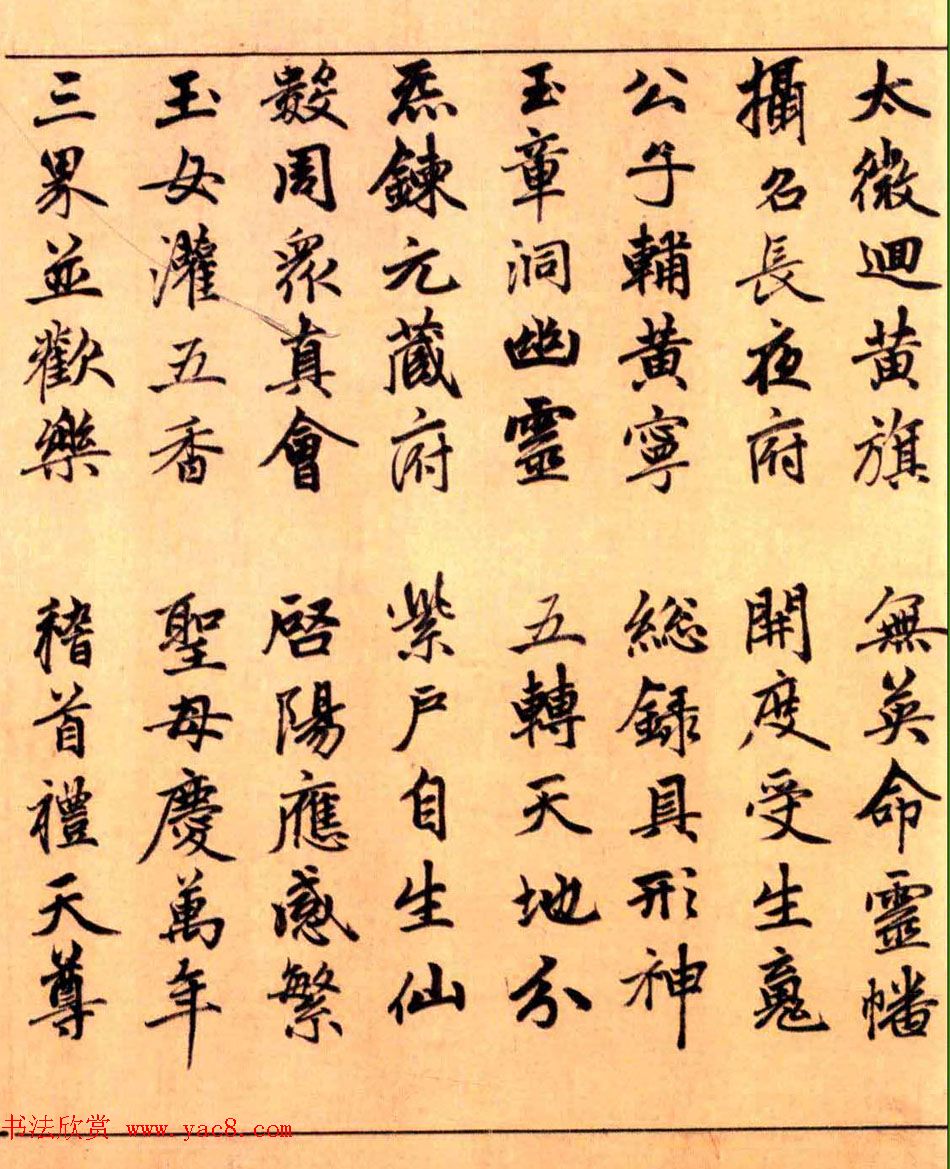 太微迴黄旗 無英命靈幡
攝名長夜府 開度受生魂
公子輔黄寧 総録具形神
玉章洞幽靈 五轉天地分
炁鍊元藏府 紫户自生仙
數周衆真會 啓陽應感繁
玉女灌五香 聖母慶萬年
三界並歡樂 稽首禮天尊
书法欣赏 www.yac8.com